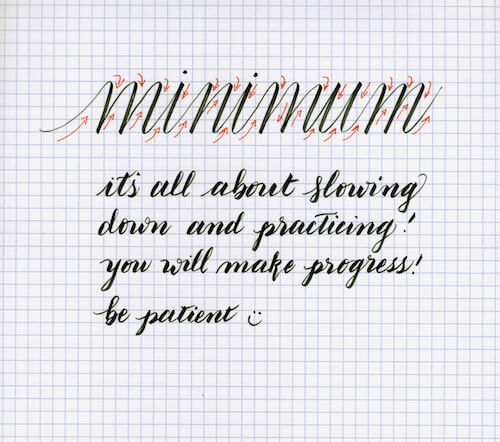 minimum
it's all about slowing
down and practicing!
you will make progress!
be patient